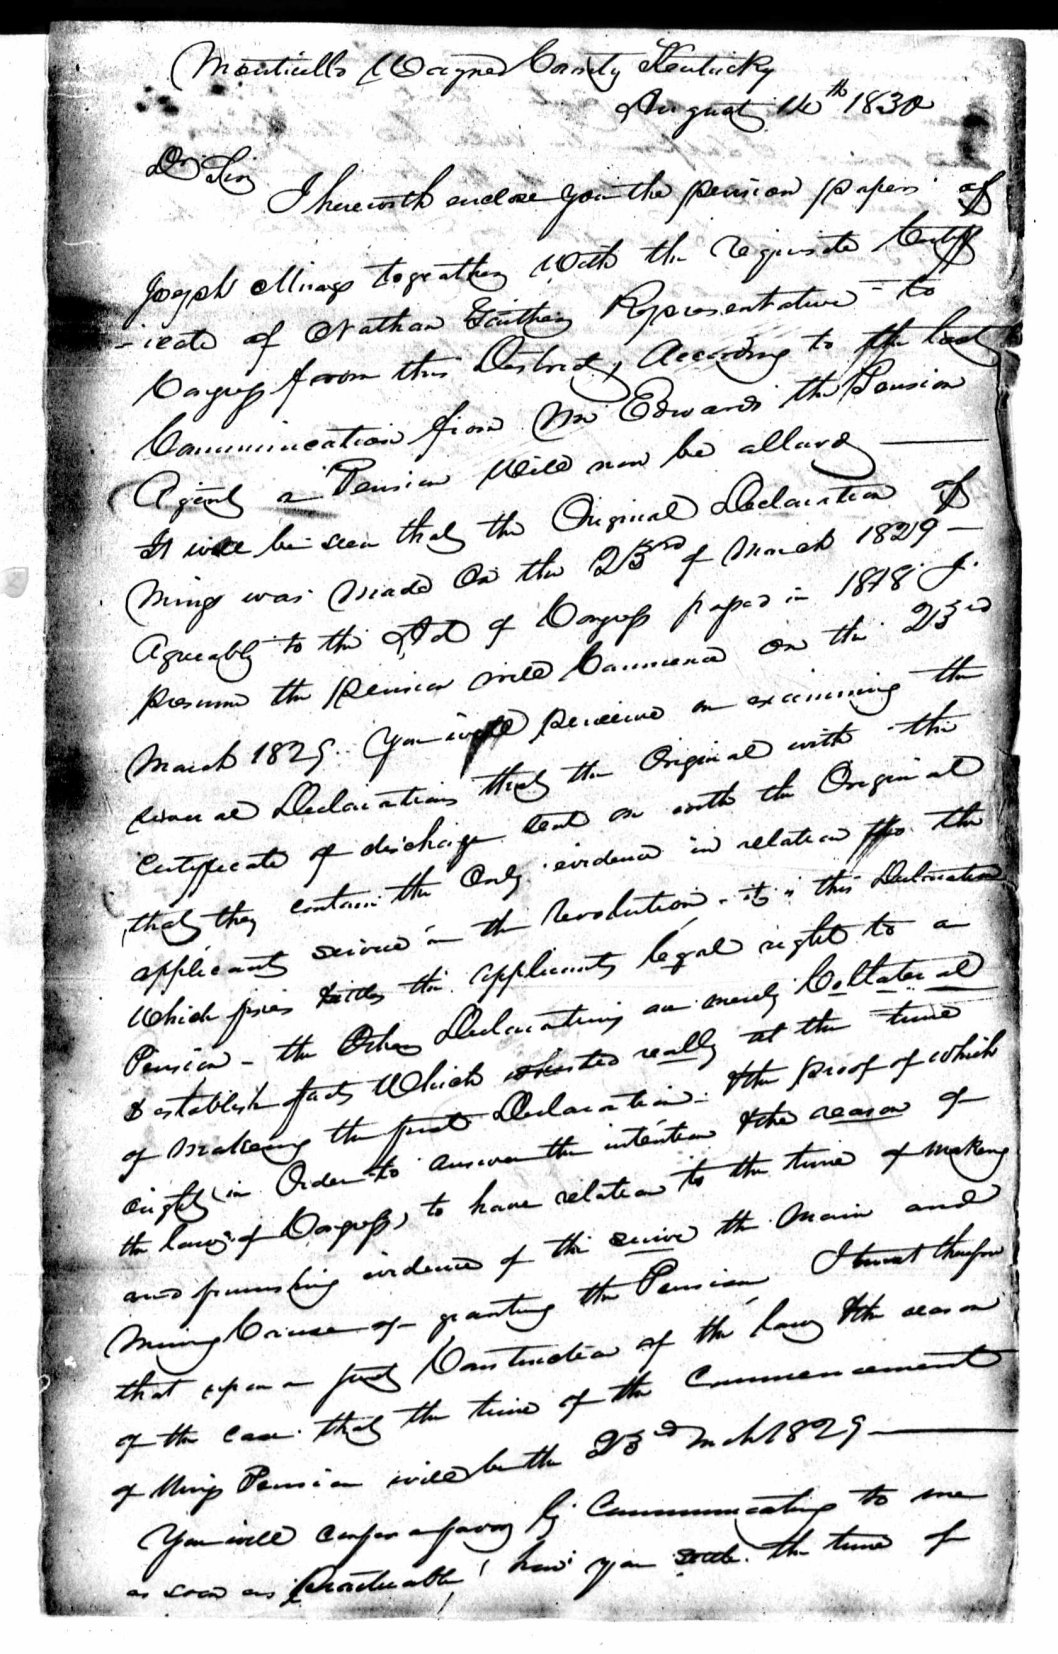 Monticello Wayne County Kentucky
August 14th 1830
Dr Sir
I herewith enclose you the pension papers of
Joseph Mings togeather with the requisite Certif
-icate of Nathan Gaither Representative to
Congress from this District, According to the last
Communication from Mr Edwards the Pension
Agent a Pension will now be allowd
It will be seen that the Original Declaration of
Mings was made on the 23rd of March 1829 -
Agreeably to the Act of Congress passed in 1818. I
presume the pension will Commence on the 23rd
March 1829. You will perceive on examining the
several Declarations that the Original with the
Certificate of discharge sent on with the Original
that they contain the Only evidence in relation to the
applicants service in the revolution - it is this Declaration
which fixes the applicants legal right to a
Pension - the Other Declarations are merely Collateral
& establish facts which existed really at the time
of makeing the first Declaration - & the proof of which
ought in Order to answer the intention & the reason of
the laws of Congress, to have relation to the time of making
and furnishing evidence of the service the main and
moving Cause of granting the Pension I trust therefore
that upon a just Construction of the law & the reason
of the case that the time of the Commencement
of Mings Pension will be the 23d Mch 1829
You will confer a favor by Communicating to me
as soon as practicable, how you settle the time of